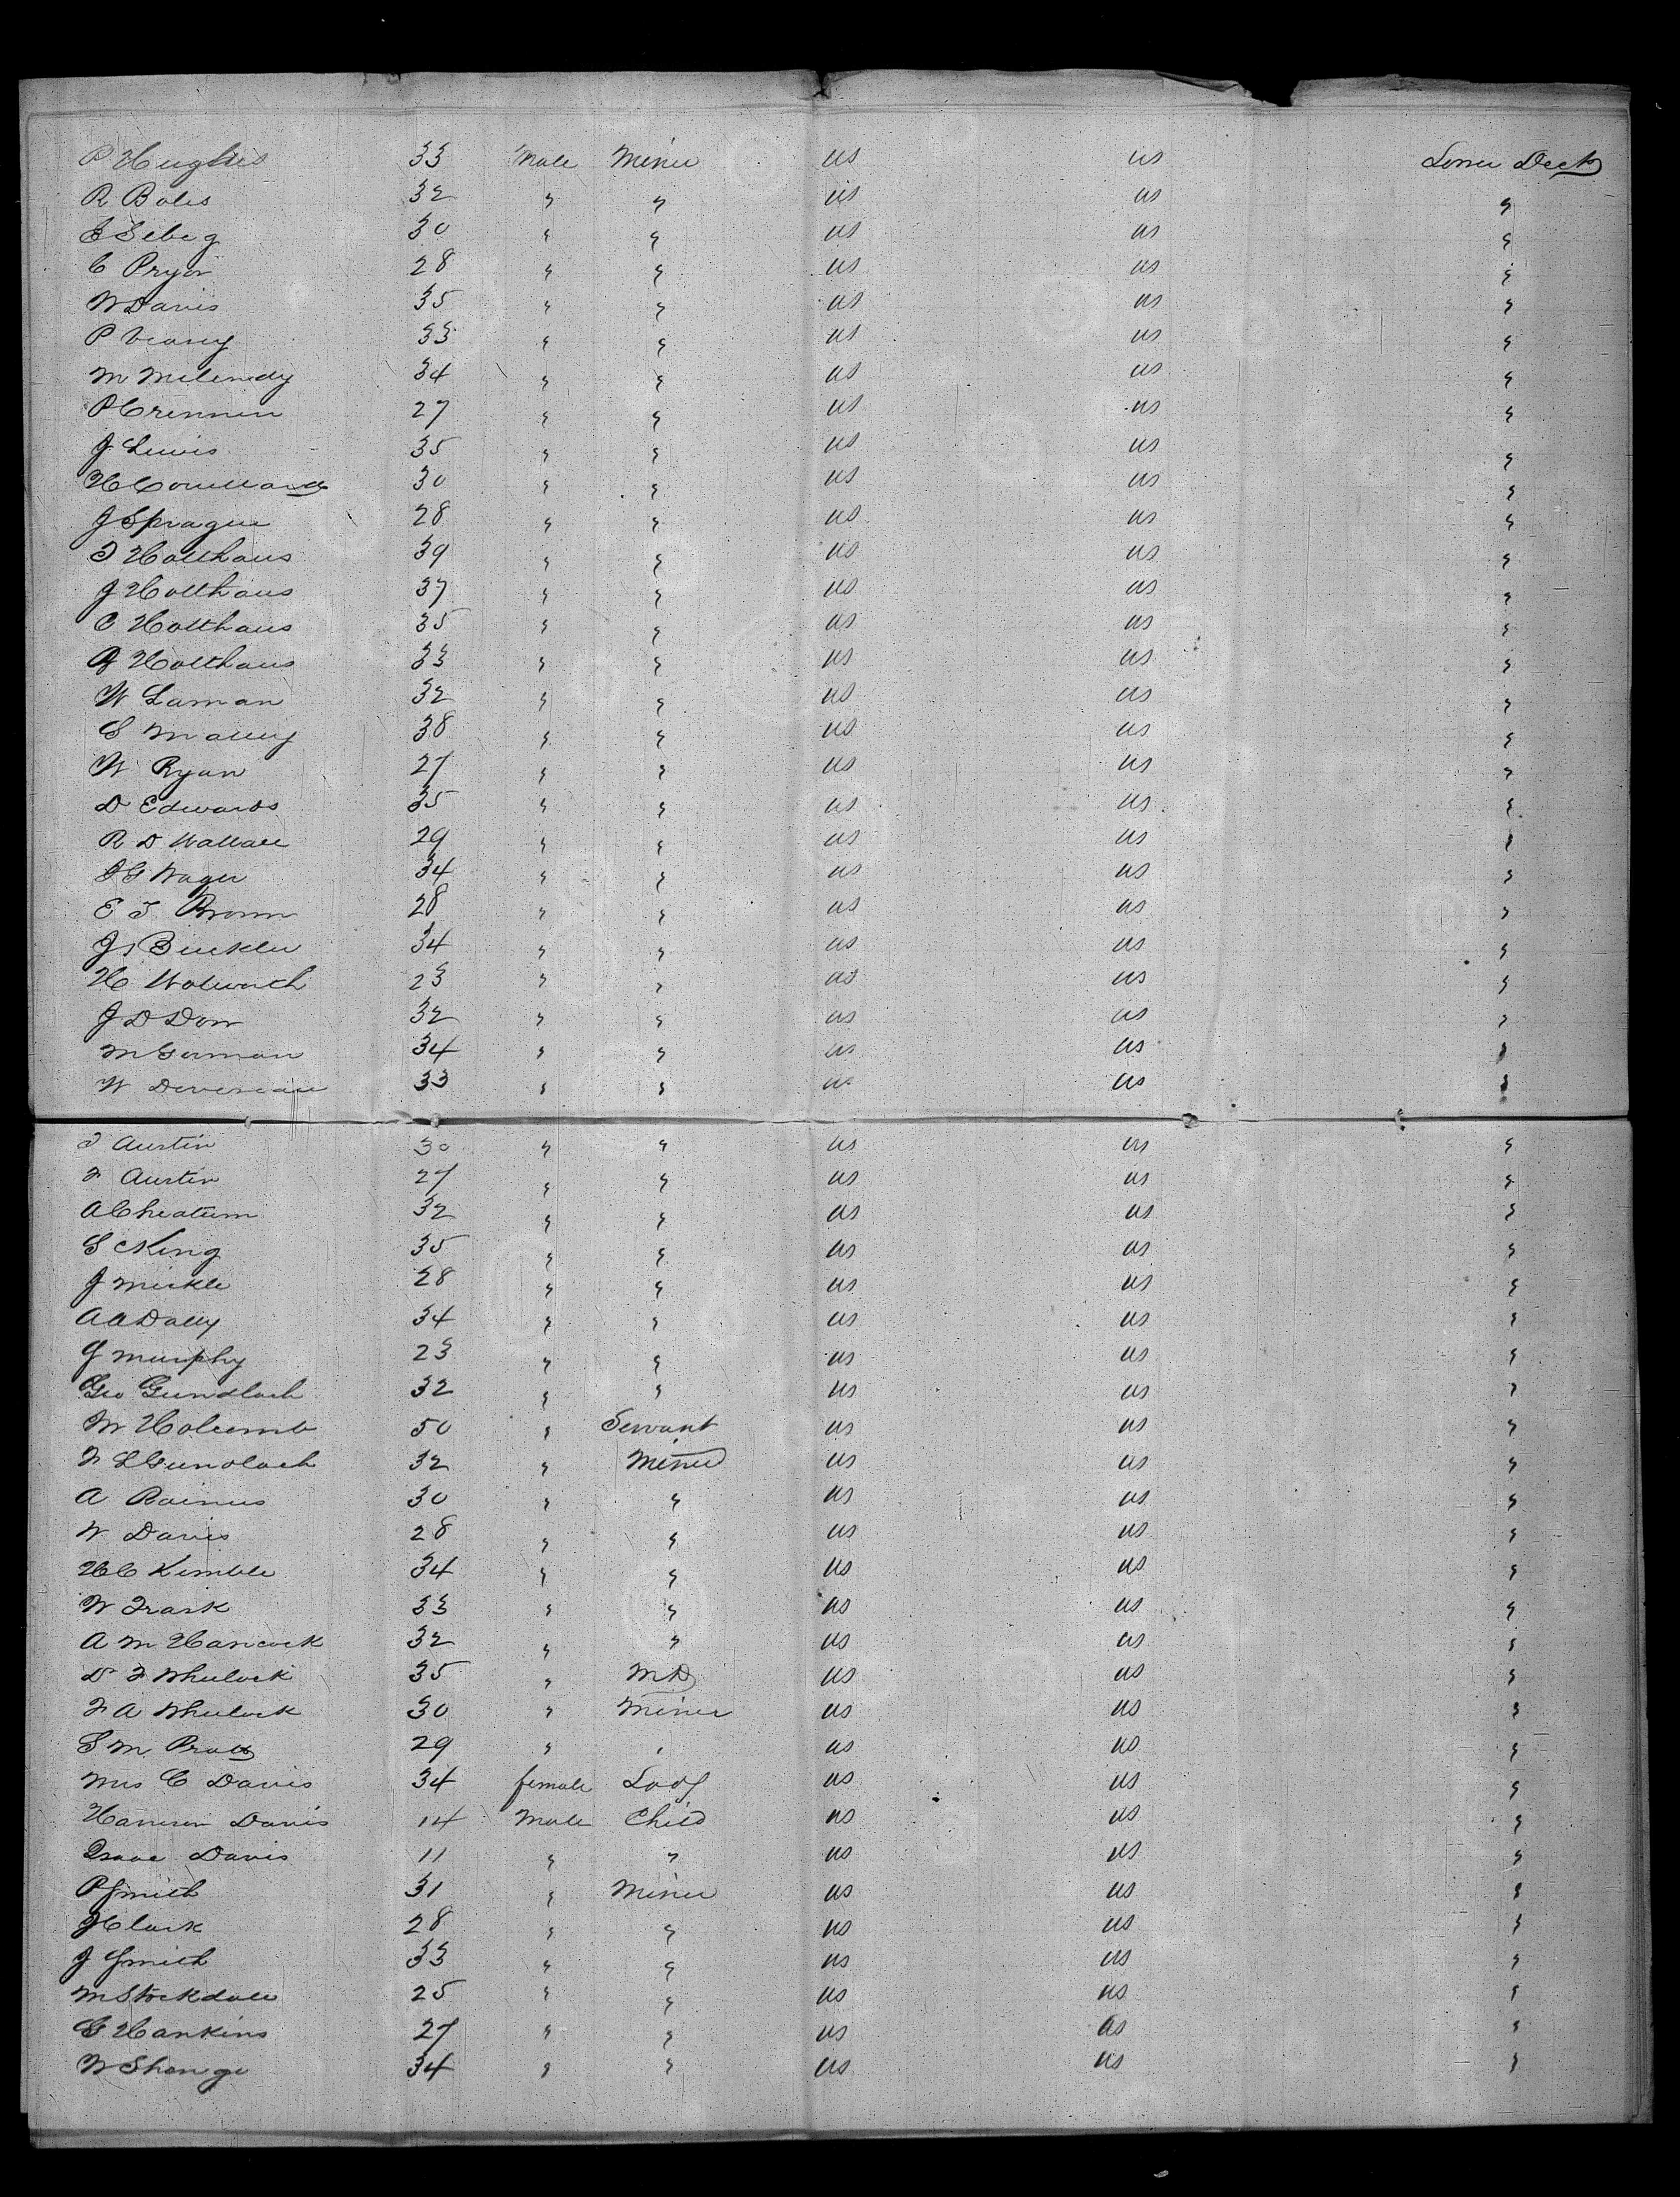 P Hughes 33 Male Miner US US Lower Deck
R Boles 32 " " US US "
Sebeg 30 " " US US "
C Pryor 28 " " US US "
W Davis 35 " " US US "
P Veasey 33 " " US US "
M Melendy 34 " " US US "
P Crennin 27 " " US US "
J Lewis 35 " " US US "
H Couillard 30 " " US US "
J Sprague 28 " " US US "
T Holthaus 39 " " US US "
J Holthaus 37 " " US US "
C Holthaus 35 " " US US "
Holthaus 33 " " US US "
W Laman 32 " " US US "
S Malley 38 " " US US "
W Ryan 27 " " US US "
D Edwards 35 " " US US "
R D Wallace 29 " " US US "
Wager 34 " " US US "
E T Brown 28 " " US US "
J Buckler 34 " " US US "
H Wolworth 23 " " US US "
J D Dow 32 " " US US "
M German 34 " " US US "
W Devereau 33 " " US US "
T Austin 30 " " US US "
F Austin 27 " " US US "
A Cheatum 32 " " US US "
S C King 35 " " US US "
J Mickle 28 " " US US "
A A Dally 34 " " US US "
J Murphy 23 " " US US "
Geo Gundlach 32 " " US US "
W Holcomb 50 " Servant US US "
F L Gundlach 32 " Miner US US "
A Raimus 30 " " US US "
W Davis 28 " " US US "
H C Kimble 34 " " US US "
W Trask 33 " " US US "
A M Hancock 32 " " US US "
D F Wheelock 35 " MD US US "
F A Wheelock 30 " Miner US US "
S M Pratt 29 " " US US "
Mrs C Davis 34 female Lady US US "
Harrison Davis 14 Male Child US US "
Isaac Davis 11 " " US US "
P Smith 31 " Miner US US "
J Clark 28 " " US US "
J Smith 33 " " US US "
M Stockdale 25 " " US US "
G Hankins 27 " " US US "
W Shenge 34 " " US US "